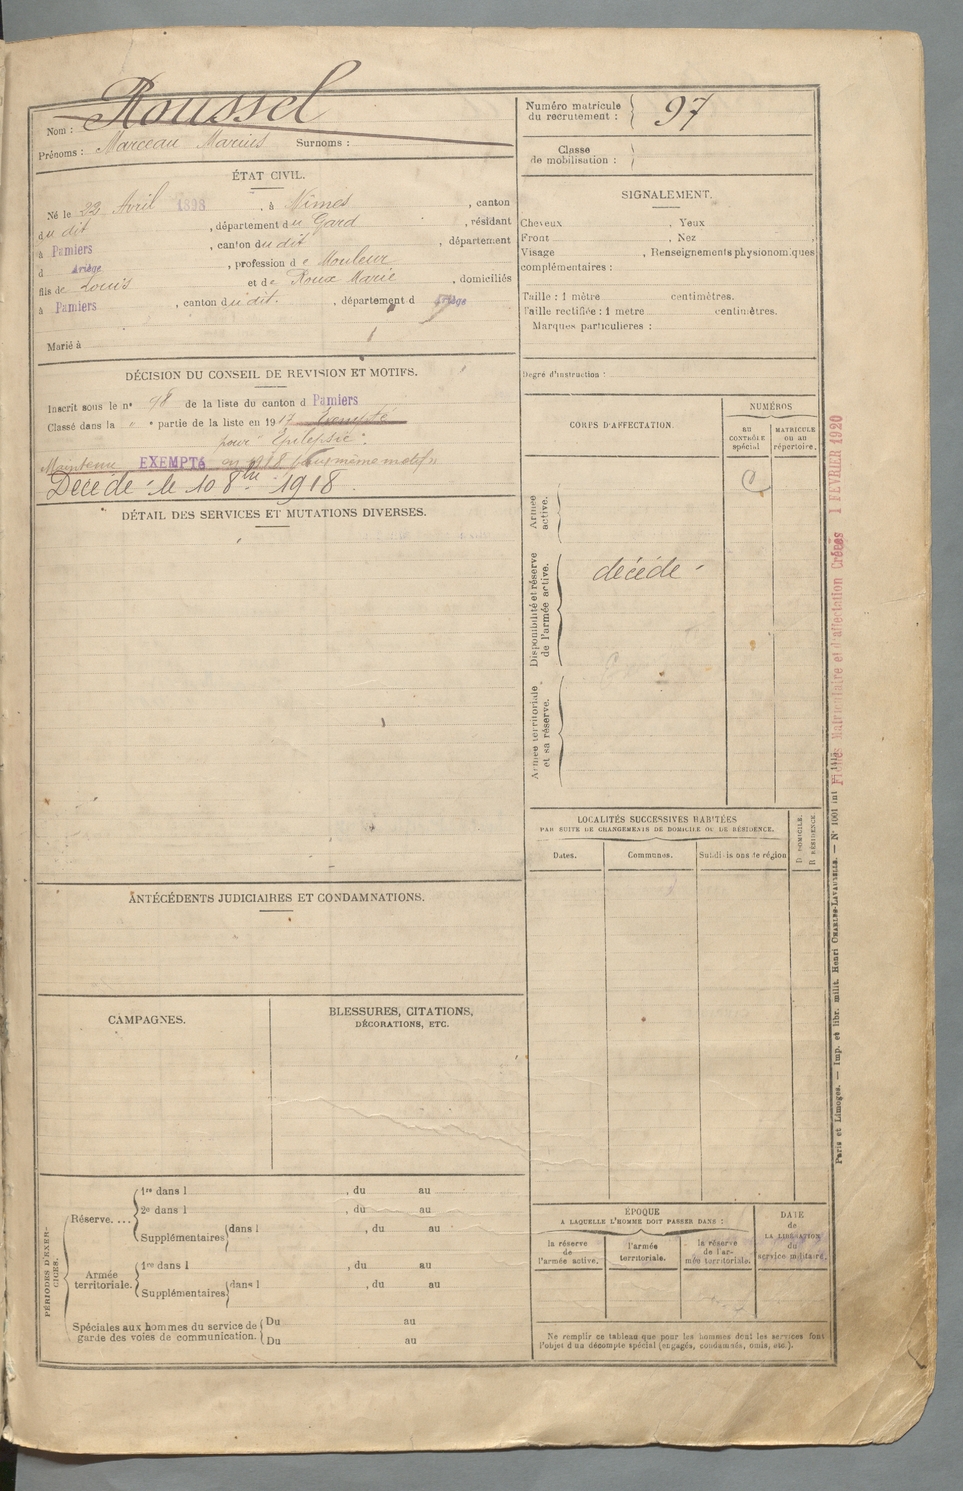 Nom : Roussel
Prénoms : Marceau Marius Surnoms :
ÉTAT CIVIL.
Né le 22 Avril 1898, à Nîmes, canton
du dit, département du Gard, résidant
à Pamiers, canton du dit, département
d Ariège, profession de Mouleur
fils de Louis et de Roux Marie, domiciliés
à Pamiers, canton du dit, département d Ariège
Marié à
DÉCISION DU CONSEIL DE REVISION ET MOTIFS.
Inscrit sous le n° 98 de la liste du canton d Pamiers
Classé dans la " ° partie de la liste en 1917 Exempté
pour "Epilepsie".
Maintenu EXEMPTé en 1918 pour même motif
Décédé le 10 8bre 1918.
DÉTAIL DES SERVICES ET MUTATIONS DIVERSES.
ANTÉCÉDENTS JUDICIAIRES ET CONDAMNATIONS.
CAMPAGNES.
BLESSURES, CITATIONS,
DÉCORATIONS, ETC.
PÉRIODES D'EXERCICES.
Réserve....
1re dans l , du au
2e dans l , du au
Supplémentaires dans l , du au
Armée territoriale.
1re dans l , du au
Supplémentaires dans l , du au
Spéciales aux hommes du service de garde des voies de communication.
Du au
Du au
Numéro matricule
du recrutement : 97
Classe
de mobilisation :
SIGNALEMENT.
Cheveux , Yeux
Front , Nez
Visage , Renseignements physionomiques
complémentaires :
Taille : 1 mètre centimètres.
Taille rectifiée : 1 mètre centimètres.
Marques particulières :
Degré d'instruction :
CORPS D'AFFECTATION.
NUMÉROS
AU CONTRÔLE spécial
MATRICULE ou au répertoire.
Armée active.
Disponibilité et réserve de l'armée active.
décédé
Armée territoriale et sa réserve.
LOCALITÉS SUCCESSIVES HABITÉES
PAR SUITE DE CHANGEMENTS DE DOMICILE OU DE RÉSIDENCE.
Dates.
Communes.
Subdivisions de région
D DOMICILE.
R RÉSIDENCE.
ÉPOQUE
A LAQUELLE L'HOMME DOIT PASSER DANS :
la réserve de l'armée active.
l'armée territoriale.
la réserve de l'armée territoriale.
DATE de LA LIBÉRATION du service militaire.
Ne remplir ce tableau que pour les hommes dont les services font
l'objet d'un décompte spécial (engagés, condamnés, omis, etc.).
Fiches Matriculaire et d'affectation Créées 1 FEVRIER 1920
Paris et Limoges. — Imp. et libr. milit. Henri CHARLES-LAVAUZELLE. — N° 1001